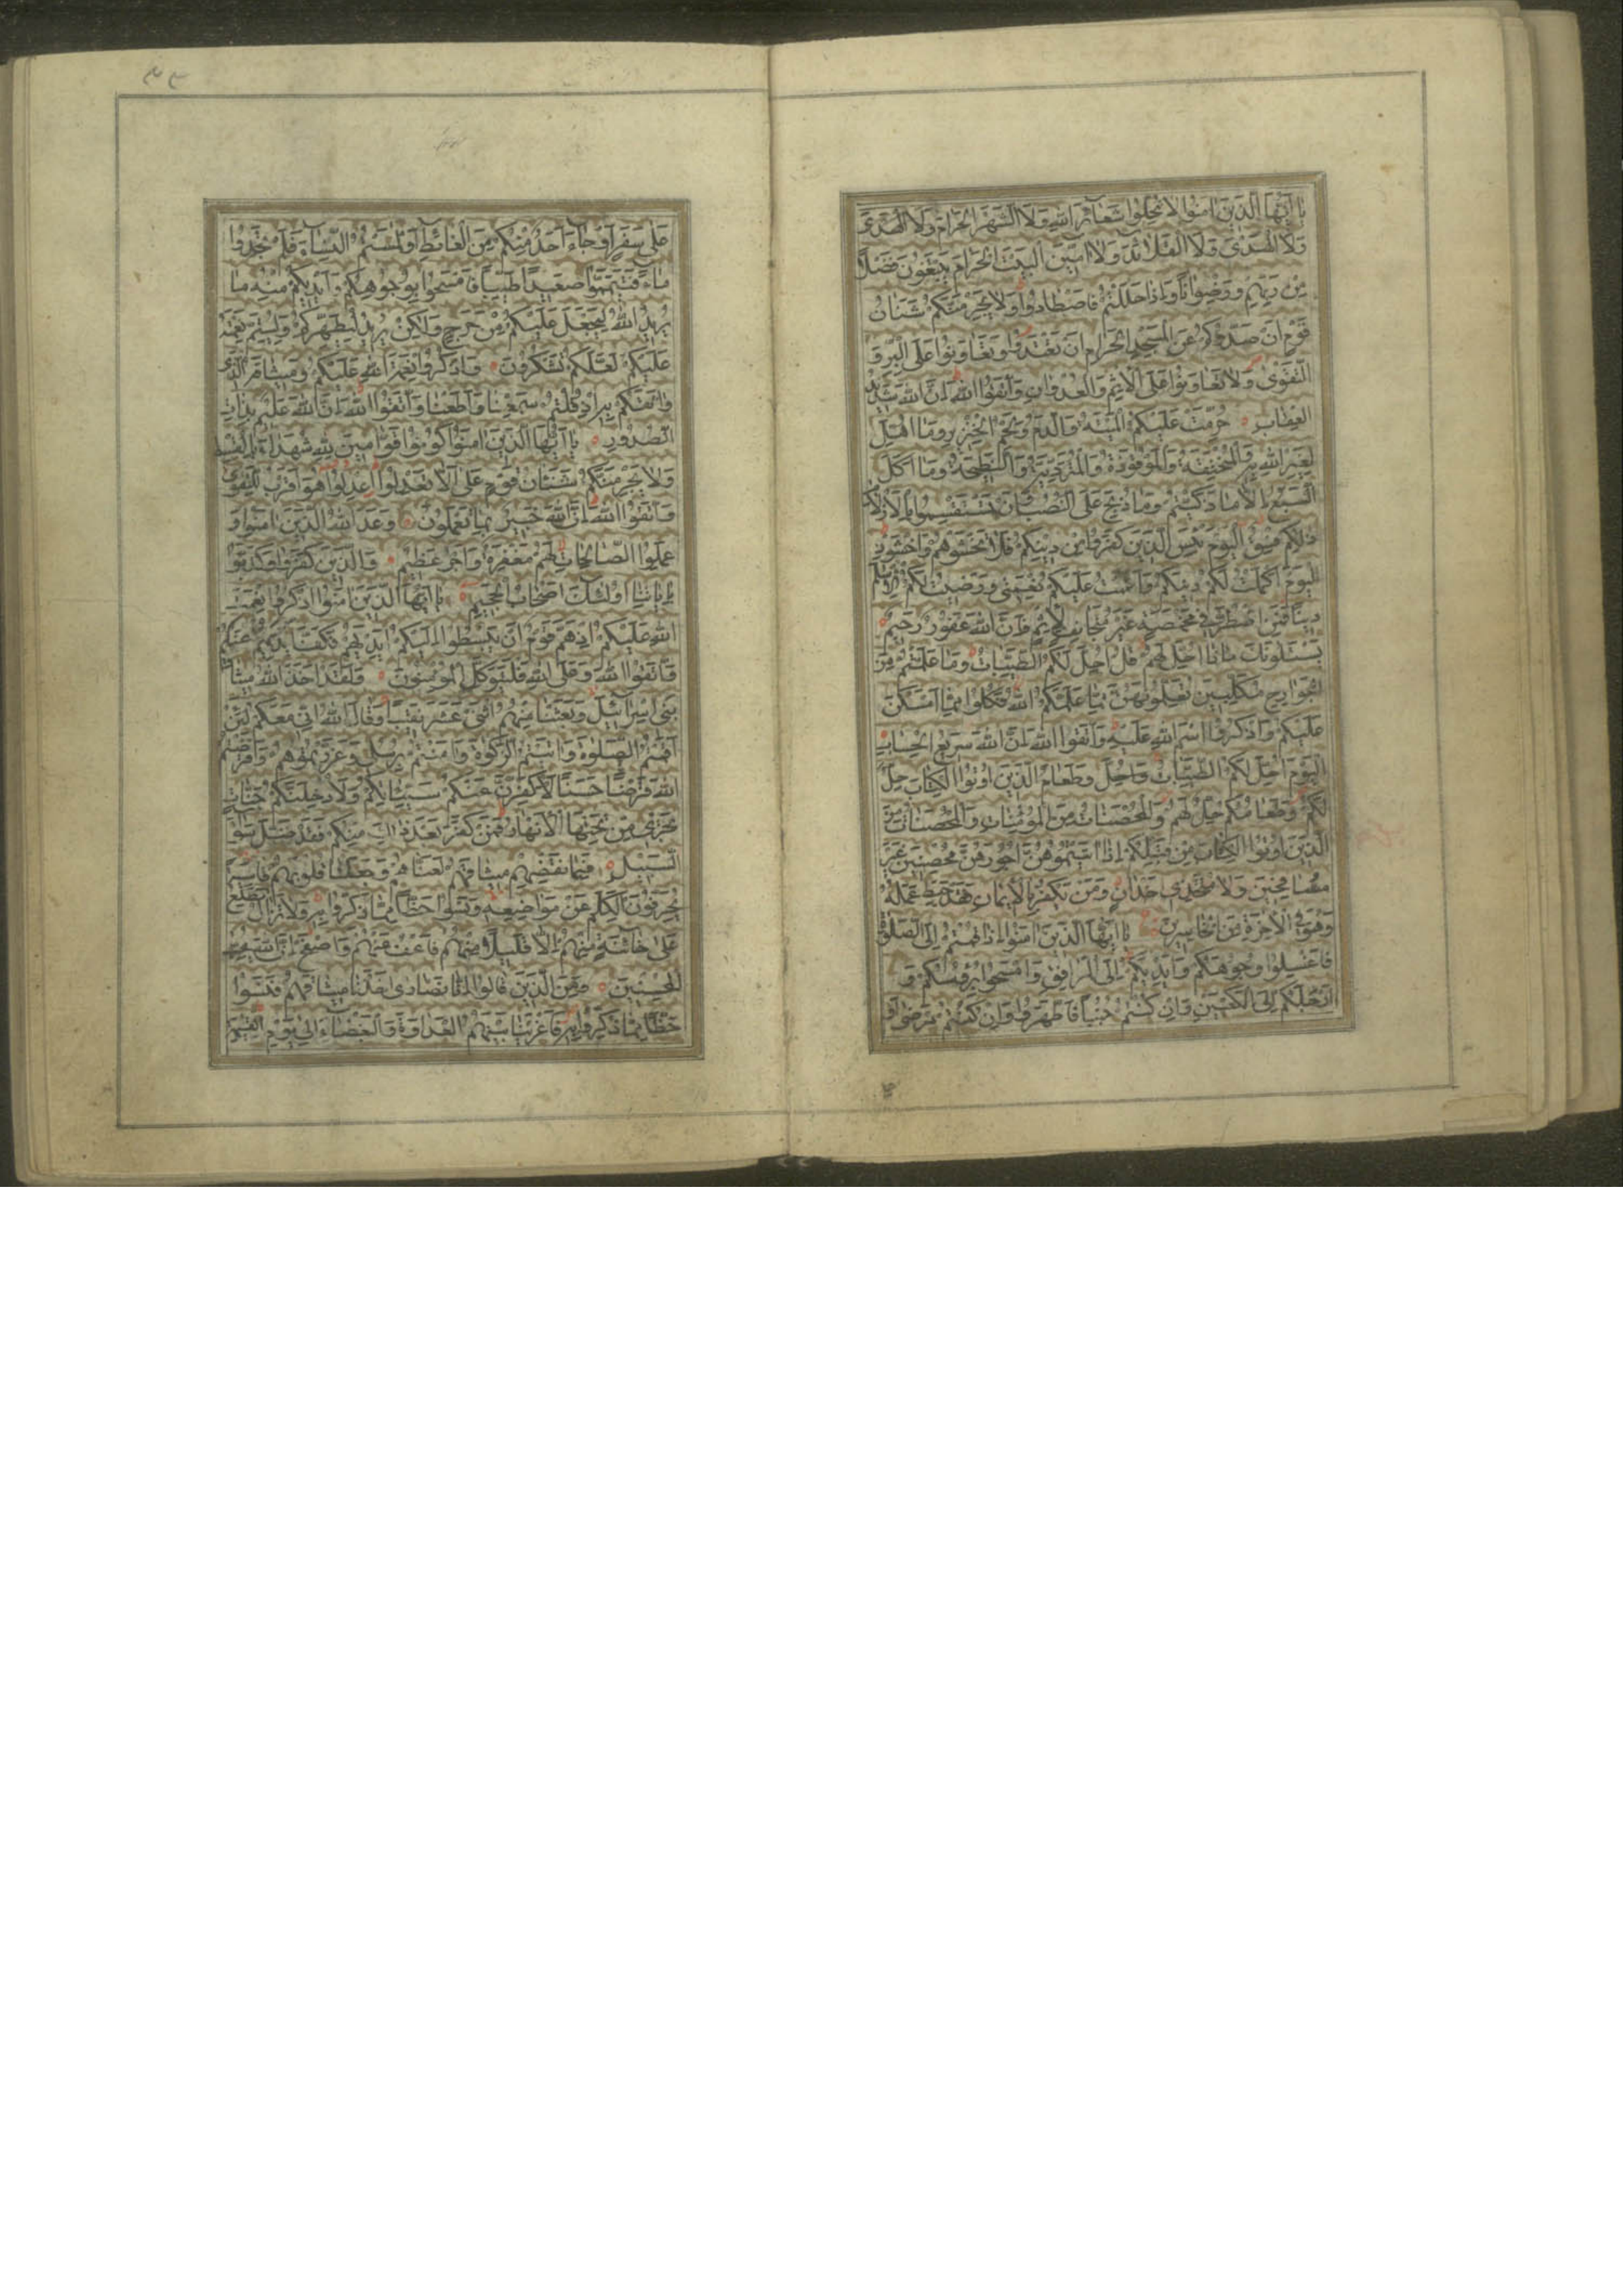 يا ايها الذين امنوا لا تحلوا شعائر الله ولا الشهر الحرام ولا الهدى
ولا الهدى ولا القلائد ولا امين البيت الحرام يبتغون فضلا
من ربهم ورضوانا واذا حللتم فاصطادوا ولا يجرمنكم شنئان
قوم ان صدوكم عن المسجد الحرام ان تعتدوا وتعاونوا على البر و
التقوى ولا تعاونوا على الاثم والعدوان واتقوا الله ان الله شديد
العقاب حرمت عليكم الميتة والدم ولحم الخنزير وما اهل
لغير الله به والمنخنقة والموقوذة والمتردية والنطيحة وما اكل
السبع الا ما ذكيتم وما ذبح على النصب وان تستقسموا بالازلام
ذلكم فسق اليوم يئس الذين كفروا من دينكم فلا تخشوهم واخشون
اليوم اكملت لكم دينكم واتممت عليكم نعمتى ورضيت لكم الاسلام
دينا فمن اضطر فى مخمصة غير متجانف لاثم فان الله غفور رحيم
يسئلونك ماذا احل لهم قل احل لكم الطيبات وما علمتم من
الجوارح مكلبين تعلمونهن مما علمكم الله فكلوا مما امسكن
عليكم واذكروا اسم الله عليه واتقوا الله ان الله سريع الحساب
اليوم احل لكم الطيبات وطعام الذين اوتوا الكتاب حل
لكم وطعامكم حل لهم والمحصنات من المؤمنات والمحصنات من
الذين اوتوا الكتاب من قبلكم اذا اتيتموهن اجورهن محصنين غير
مسافحين ولا متخذى اخدان ومن يكفر بالايمان فقد حبط عمله
وهو فى الاخرة من الخاسرين يا ايها الذين امنوا اذا قمتم الى الصلوة
فاغسلوا وجوهكم وايديكم الى المرافق وامسحوا برؤسكم و
ارجلكم الى الكعبين وان كنتم جنبا فاطهروا وان كنتم مرضى او
على سفر او جاء احد منكم من الغائط او لامستم النساء فلم تجدوا
ماء فتيمموا صعيدا طيبا فامسحوا بوجوهكم وايديكم منه ما
يريد الله ليجعل عليكم من حرج ولكن يريد ليطهركم وليتم نعمته
عليكم لعلكم تشكرون واذكروا نعمة الله عليكم وميثاقه الذى
واثقكم به اذ قلتم سمعنا واطعنا واتقوا الله ان الله عليم بذات
الصدور يا ايها الذين امنوا كونوا قوامين لله شهداء بالقسط
ولا يجرمنكم شنئان قوم على الا تعدلوا اعدلوا هو اقرب للتقوى
واتقوا الله ان الله خبير بما تعملون وعد الله الذين امنوا و
عملوا الصالحات لهم مغفرة واجر عظيم والذين كفروا وكذبوا
باياتنا اولئك اصحاب الجحيم يا ايها الذين امنوا اذكروا نعمت
الله عليكم اذ هم قوم ان يبسطوا اليكم ايديهم فكف ايديهم عنكم
واتقوا الله وعلى الله فليتوكل المؤمنون ولقد اخذ الله ميثاق
بنى اسرائيل وبعثنا منهم اثنى عشر نقيبا وقال الله انى معكم لئن
اقمتم الصلوة واتيتم الزكوة وامنتم برسلى وعزرتموهم واقرضتم
الله قرضا حسنا لاكفرن عنكم سيئاتكم ولادخلنكم جنات
تجرى من تحتها الانهار فمن كفر بعد ذلك منكم فقد ضل سواء
السبيل فبما نقضهم ميثاقهم لعناهم وجعلنا قلوبهم قاسية
يحرفون الكلم عن مواضعه ونسوا حظا مما ذكروا به ولا تزال تطلع
على خائنة منهم الا قليلا منهم فاعف عنهم واصفح ان الله يحب
المحسنين ومن الذين قالوا انا نصارى اخذنا ميثاقهم فنسوا
حظا مما ذكروا به فاغرينا بينهم العداوة والبغضاء الى يوم القيمة